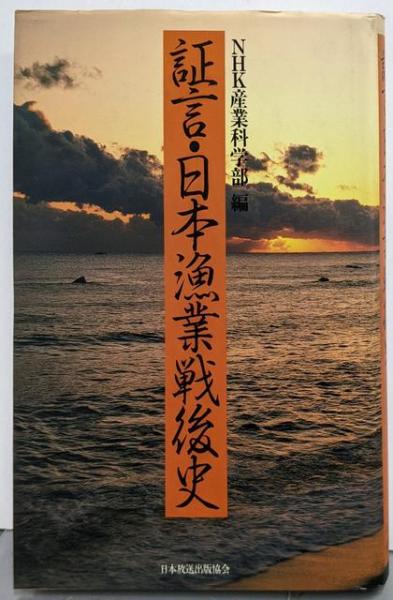 NHK産業科学部 編
証言・日本漁業戦後史
日本放送出版協会